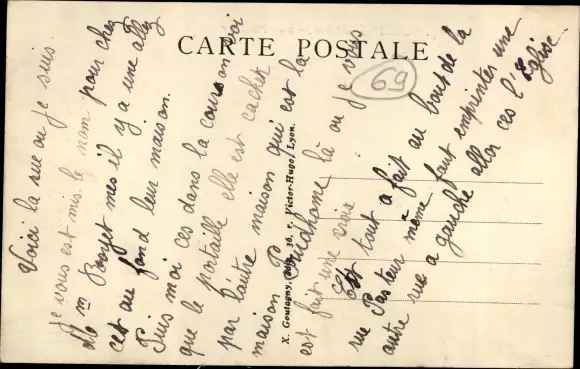 CARTE POSTALE
69
X. Goutagny, édit., 36, r. Victor-Hugo, Lyon.
Voici la rue ou je suis
je vous est mis le nom pour chez
M m Boyet mes il y a une allez
cet au fond leur maison.
Puis moi ces dans la cour on voi
que le portaille elle est cachet
par l'autre maison qui est la
maison Prudhome là ou je vous
est fait une croix
Est tout a fait au bout de la
rue Pasteur même faut emprinter une
autre rue a gauche allor ces l'Eglise